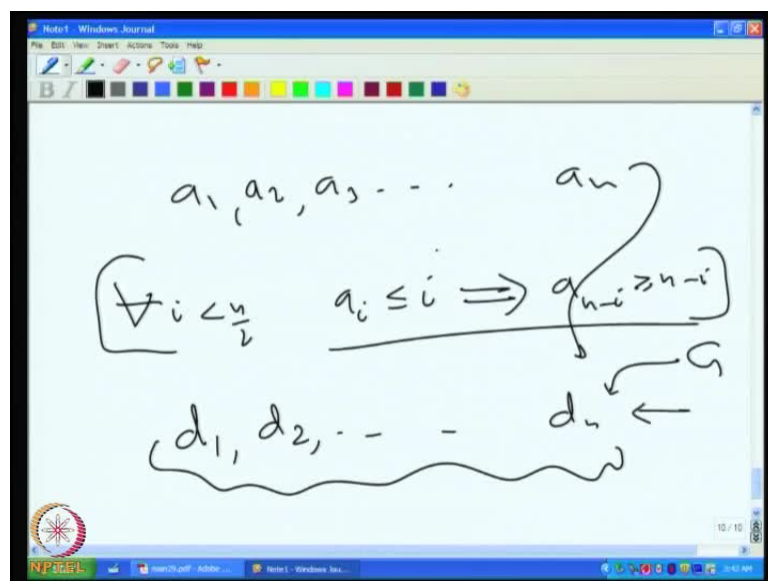 Note1 - Windows Journal
File Edit View Insert Actions Tools Help
B I
a₁, a₂, a₃ - - - aₙ
[∀ i < n/2 aᵢ ≤ i ⟹ aₙ₋ᵢ ≥ n-i]
G
d₁, d₂, - - - dₙ ←
10 / 10
NPTEL
Note1 - Windows Jou...
3:42 AM